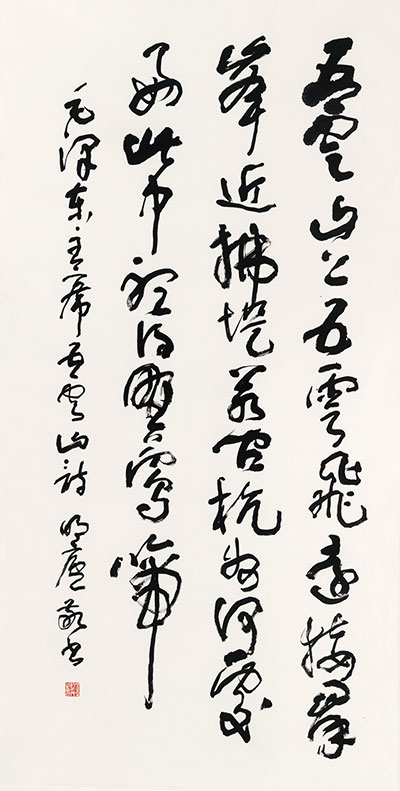 五雲山上五雲飛遠接羣
峯近拂堤若問杭州何處
好此中聽得野鶯啼
毛澤東主席五雲山詩 明廬敬書